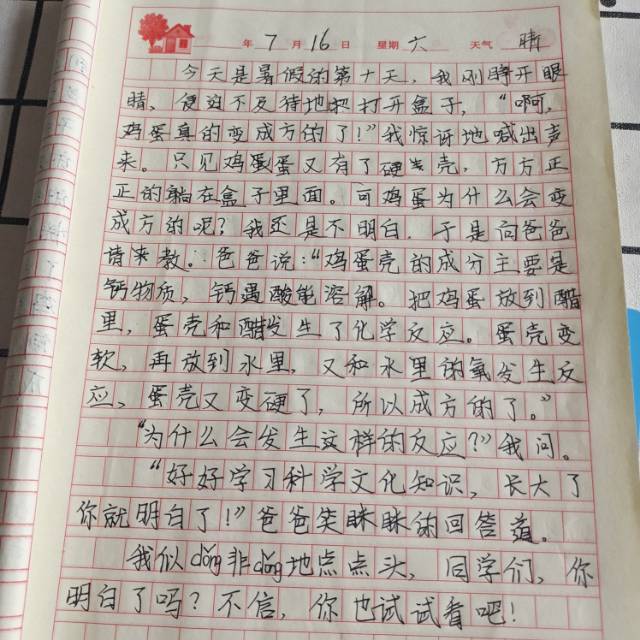 年 7 月 16 日 星期 六 天气 晴
今天是暑假的第十天，我刚睁开眼
睛，便迫不及待地把打开盒子，“啊，
鸡蛋真的变成方的了！”我惊讶地喊出声
来。只见鸡蛋蛋又有了硬壳，方方正
正的躺在盒子里面。可鸡蛋为什么会变
成方的呢？我还是不明白，于是向爸爸
请来教。爸爸说：“鸡蛋壳的成分主要是
钙物质，钙遇酸能溶解。把鸡蛋放到醋
里，蛋壳和醋发生了化学反应。蛋壳变
软，再放到水里，又和水里的氧发生反
应、蛋壳又变硬了，所以成方的了。”
“为什么会发生这样的反应？”我问。
“好好学习科学文化知识，长大了
你就明白了！”爸爸笑眯眯的回答道。
我似dǒng非dǒng地点点头，同学们，你
明白了吗？不信，你也试试看吧！